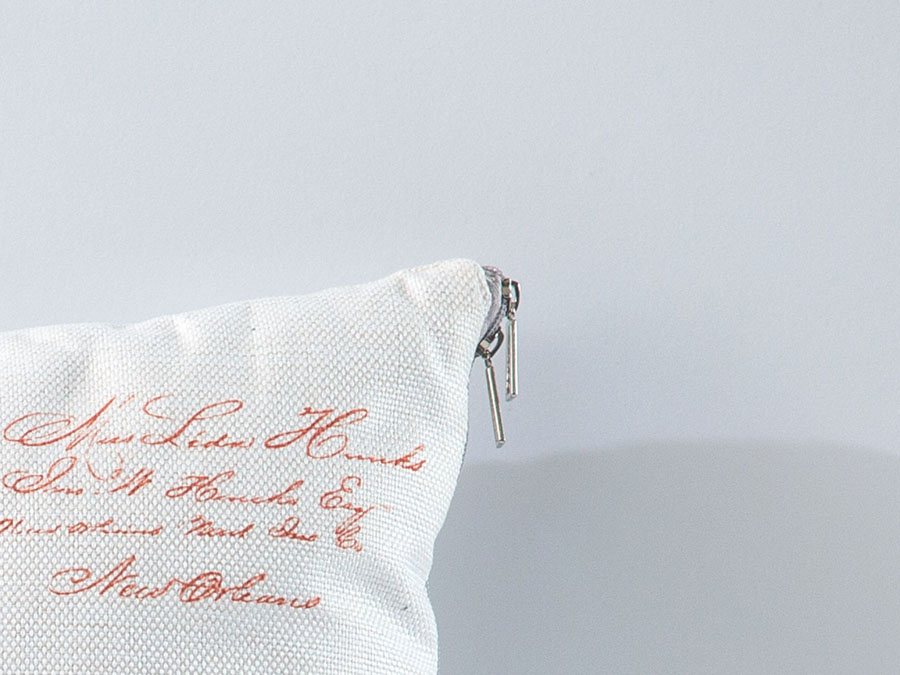 Miss Lidu Hunks
Jno. W Huncks Esq
New Orleans Ins Co
New Orleans